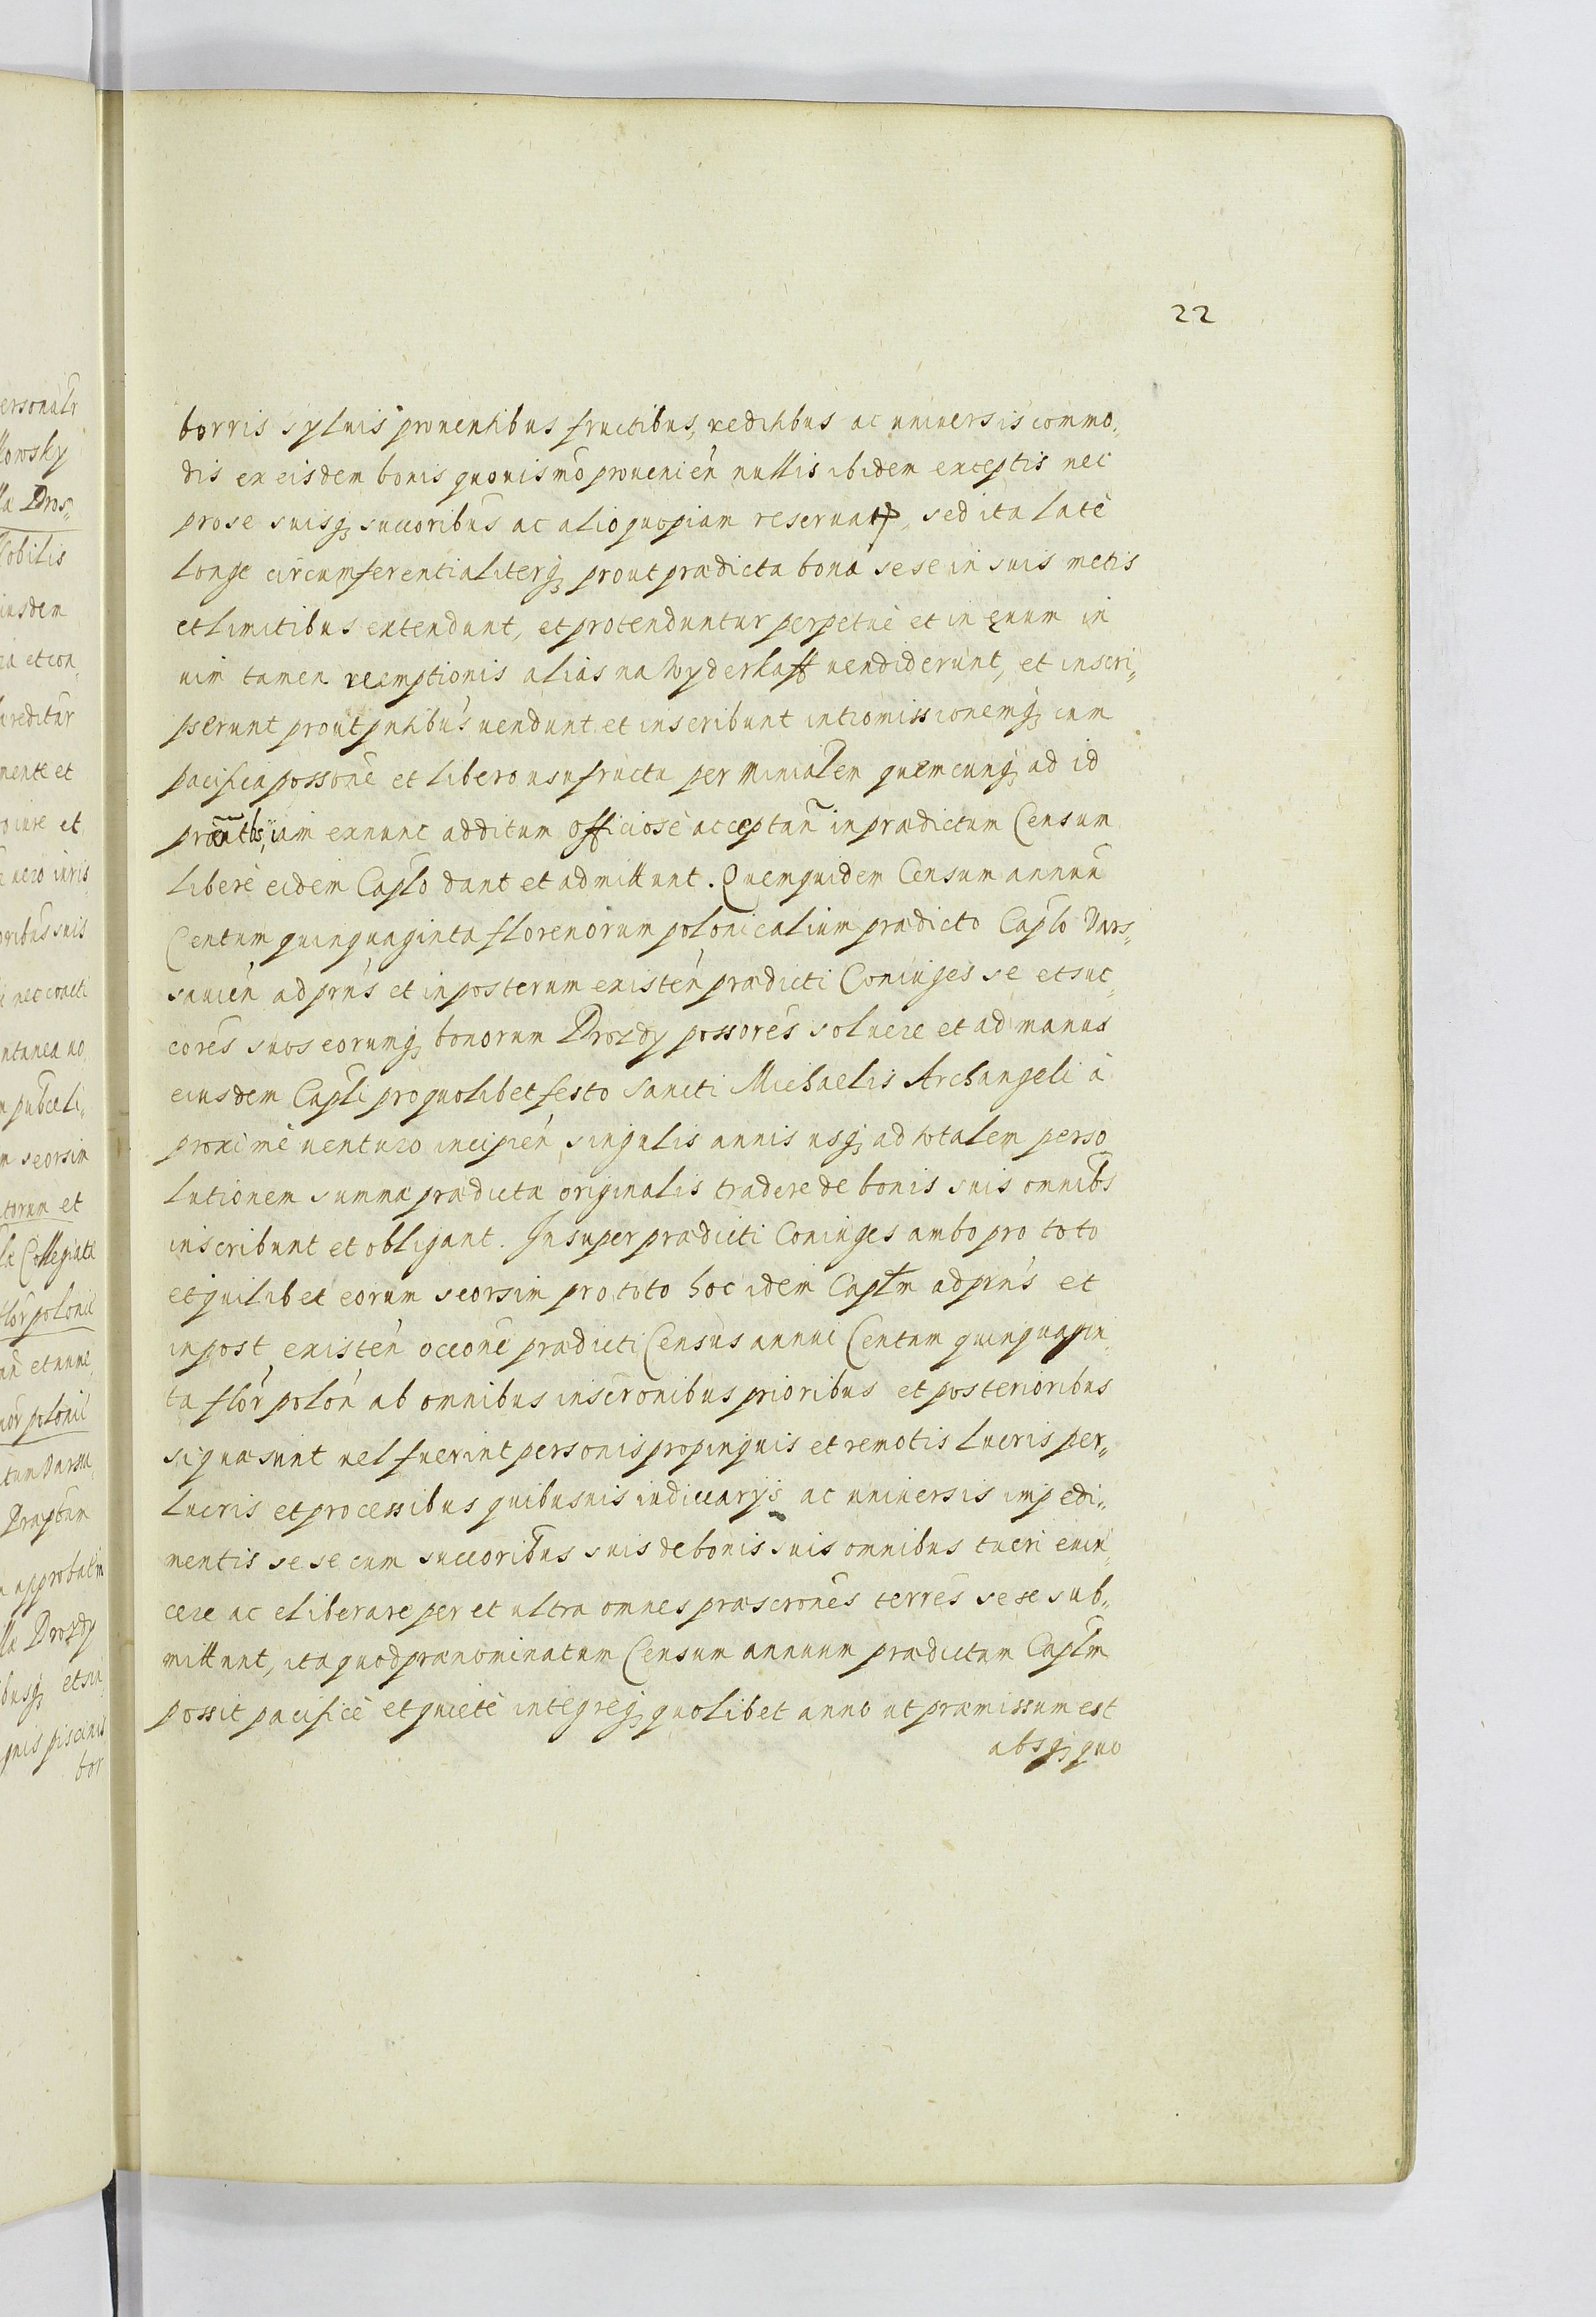 22
borris syluis prouentibus fructibus, reditibus ac uniuersis commo„
dis ex eisdem bonis quouismõ prouenień nullis ibidem exceptis nec
pro se suisq; succoribus ac alio quopiam reseruat, sed ita latè
longe circumferentialiterq; prout prædicta bona sese in suis metis
et limitibus extendunt, et protenduntur perpetuè et in ęuum in
uim tamen reemptionis aliàs na Wyderkaff uendiderunt, et inscri„
pserunt prout pntibus uendunt et inscribunt intromissionemq; cum
pacifica possone et libero usufructu per minialem quemcunq; ad id
iam exnunc additum officiosè acceptañ in prædictum Censum
liberè eidem Caplo dant et admittunt. Quemquidem Censum annuũ
Centum quinquaginta florenorum polonicalium prædicto Caplo Vars„
sauień ad prns et in posterum existeń prædicti Coniuges se et suc„
cores suos eorumq; bonorum Drozdy possores soluere et ad manus
eiusdem Capli pro quolibet festo Sancti Michaelis Archangeli à
proximè uenturo incipień, singulis annis usq; ad totalem perso„
lutionem summæ prædictæ originalis tradere de bonis suis omnibs
inscribunt et obligant. Insuper prædicti Coniuges ambo pro toto
et quilibet eorum seorsim pro toto hoc idem Caplm ad prns et
in post existeń occone prædicti Censùs annui Centum quinquagin„
ta flor poloń ab omnibus inscronibus prioribus et posterioribus
si quæ sunt uel fuerint personis propinquis et remotis lucris per„
lucris et processibus quibusuis iudiccarijs ac uniuersis impedi„
mentis sese cum succoribus suis de bonis suis omnibus tueri euin„
cere ac eliberare per et ultra omnes præscrones terres sese sub„
mittunt, ita quod prænominatum Censum annuum prædictum Caplm
possit pacificè et quietè integrèq; quolibet anno ut præmissum est
absq; quo